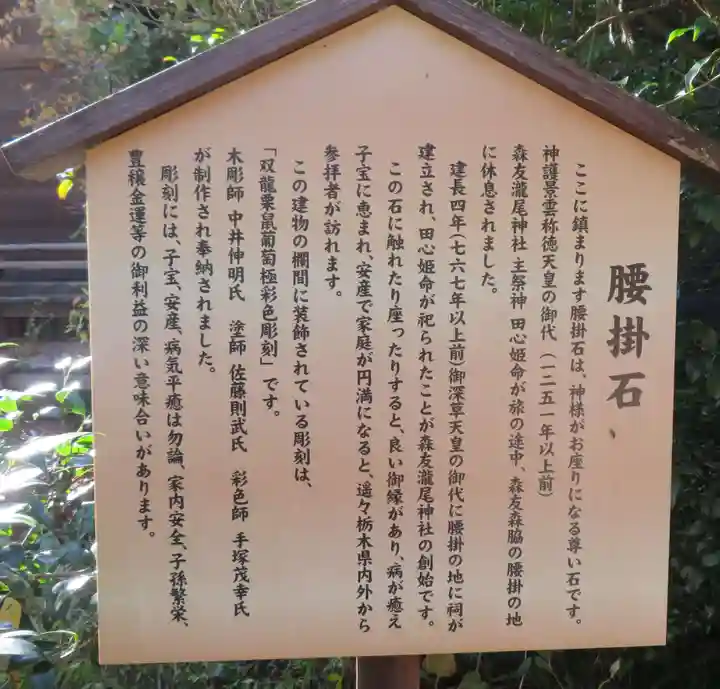 腰掛石
ここに鎮まります腰掛石は、神様がお座りになる尊い石です。
神護景雲称徳天皇の御代(一二五一年以上前)
森友瀧尾神社 主祭神 田心姫命が旅の途中、森友森脇の腰掛の地
に休息されました。
建長四年(七六七年以上前)御深草天皇の御代に腰掛の地に祠が
建立され、田心姫命が祀られたことが森友瀧尾神社の創始です。
この石に触れたり座ったりすると、良い御縁があり、病が癒え
子宝に恵まれ、安産で家庭が円満になると、遥々栃木県内外から
参拝者が訪れます。
この建物の欄間に装飾されている彫刻は、
「双龍栗鼠葡萄極彩色彫刻」です。
木彫師 中井伸明氏 塗師 佐藤則武氏 彩色師 手塚茂幸氏
が制作され奉納されました。
彫刻には、子宝、安産、病気平癒は勿論、家内安全、子孫繁栄、
豊穣金運等の御利益の深い意味合いがあります。